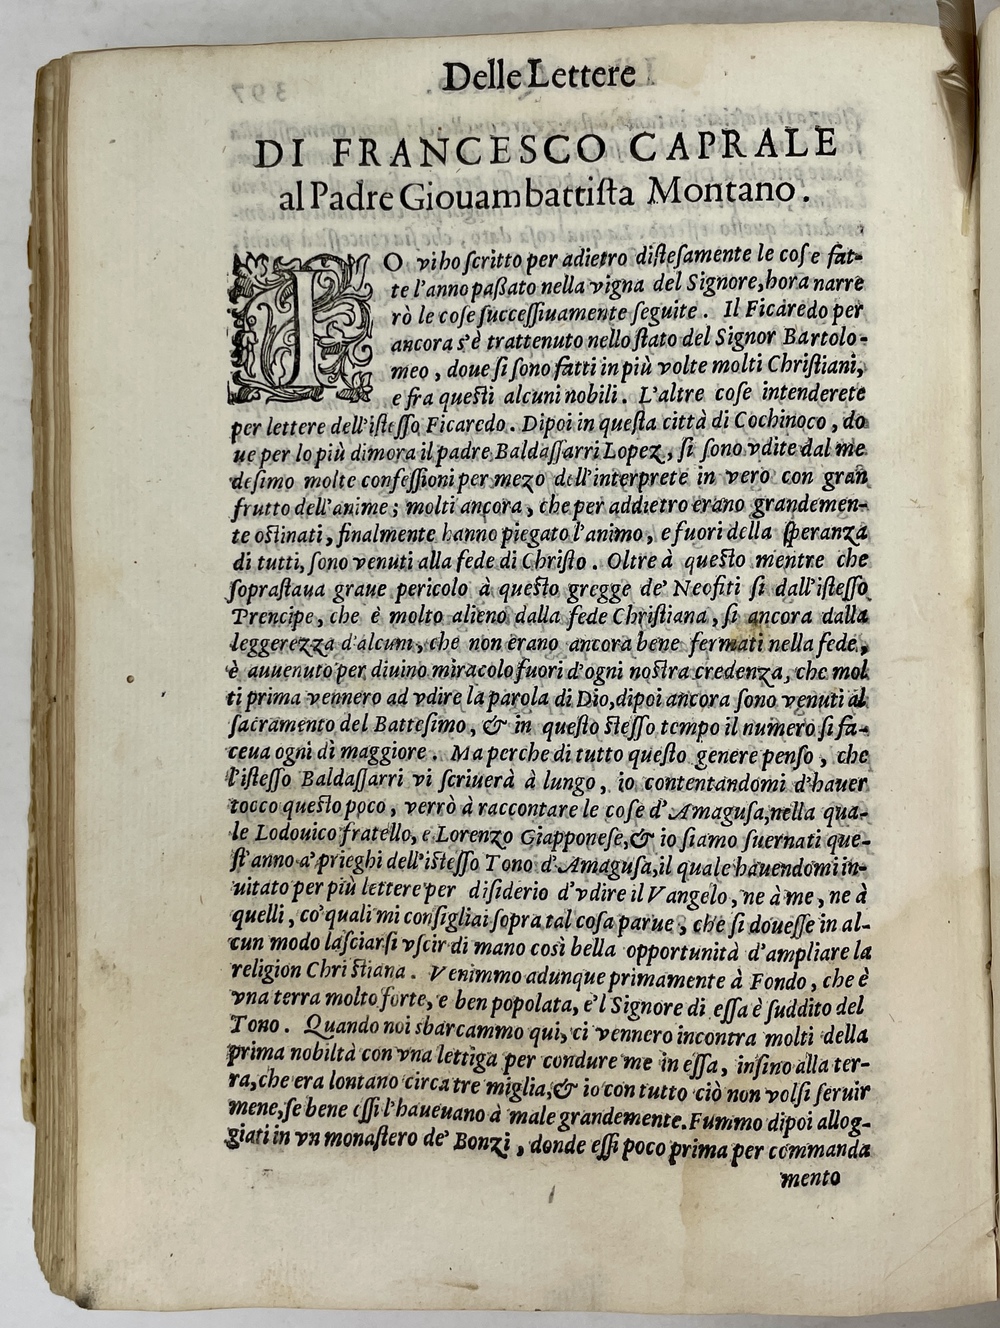 Delle Lettere
DI FRANCESCO CAPRALE
al Padre Giouambattiſta Montano.
IO vi ho ſcritto per adietro diſteſamente le coſe fat-
te l'anno paßato nella vigna del Signore, hora narre
rò le coſe ſucceſſiuamente ſeguite. Il Ficaredo per
ancora s'è trattenuto nello ſtato del Signor Bartolo-
meo, doue ſi ſono fatti in più volte molti Chriſtiani,
e fra queſti alcuni nobili. L'altre coſe intenderete
per lettere dell'iſteſſo Ficaredo. Dipoi in queſta città di Cochinoco, do
ue per lo più dimora il padre Baldaſſarri Lopez, ſi ſono vdite dal me
deſimo molte confeſſioni per mezo dell'interprete in vero con gran
frutto dell'anime; molti ancora, che per addietro erano grandemen-
te oſtinati, finalmente hanno piegato l'animo, e fuori della ſperanza
di tutti, ſono venuti alla fede di Chriſto. Oltre à queſto mentre che
ſopraſtaua graue pericolo à queſto gregge de' Neofiti ſi dall'iſteſſo
Prencipe, che è molto alieno dalla fede Chriſtiana, ſi ancora dalla
leggerezza d'alcuni, che non erano ancora bene fermati nella fede,
è auuenuto per diuino miracolo fuori d'ogni noſtra credenza, che mol
ti prima vennero ad vdire la parola di Dio, dipoi ancora ſono venuti al
ſacramento del Batteſimo, & in queſto ſteſſo tempo il numero ſi fa-
ceua ogni dì maggiore. Ma perche di tutto queſto genere penſo, che
l'iſteſſo Baldaſſarri vi ſcriuerà à lungo, io contentandomi d'hauer
tocco queſto poco, verrò à raccontare le coſe d'Amaguſa, nella qua-
le Lodouico fratello, e Lorenzo Giapponeſe, & io ſiamo ſuernati que-
ſt'anno a' prieghi dell'iſteſſo Tono d'Amaguſa, il quale hauendomi in-
uitato per più lettere per diſiderio d'vdire il Vangelo, ne à me, ne à
quelli, co' quali mi conſigliai ſopra tal coſa parue, che ſi doueſſe in al-
cun modo laſciarſi vſcir di mano così bella opportunità d'ampliare la
religion Chriſtiana. Venimmo adunque primamente à Fondo, che è
vna terra molto forte, e ben popolata, e'l Signore di eſſa è ſuddito del
Tono. Quando noi sbarcammo qui, ci vennero incontra molti della
prima nobiltà con vna lettiga per condure me in eſſa, inſino alla ter-
ra, che era lontano circa tre miglia, & io con tutto ciò non volſi ſeruir
mene, ſe bene eſſi l'haueuano à male grandemente. Fummo dipoi allog-
giati in vn monaſtero de' Bonzi, donde eſſi poco prima per commanda
mento